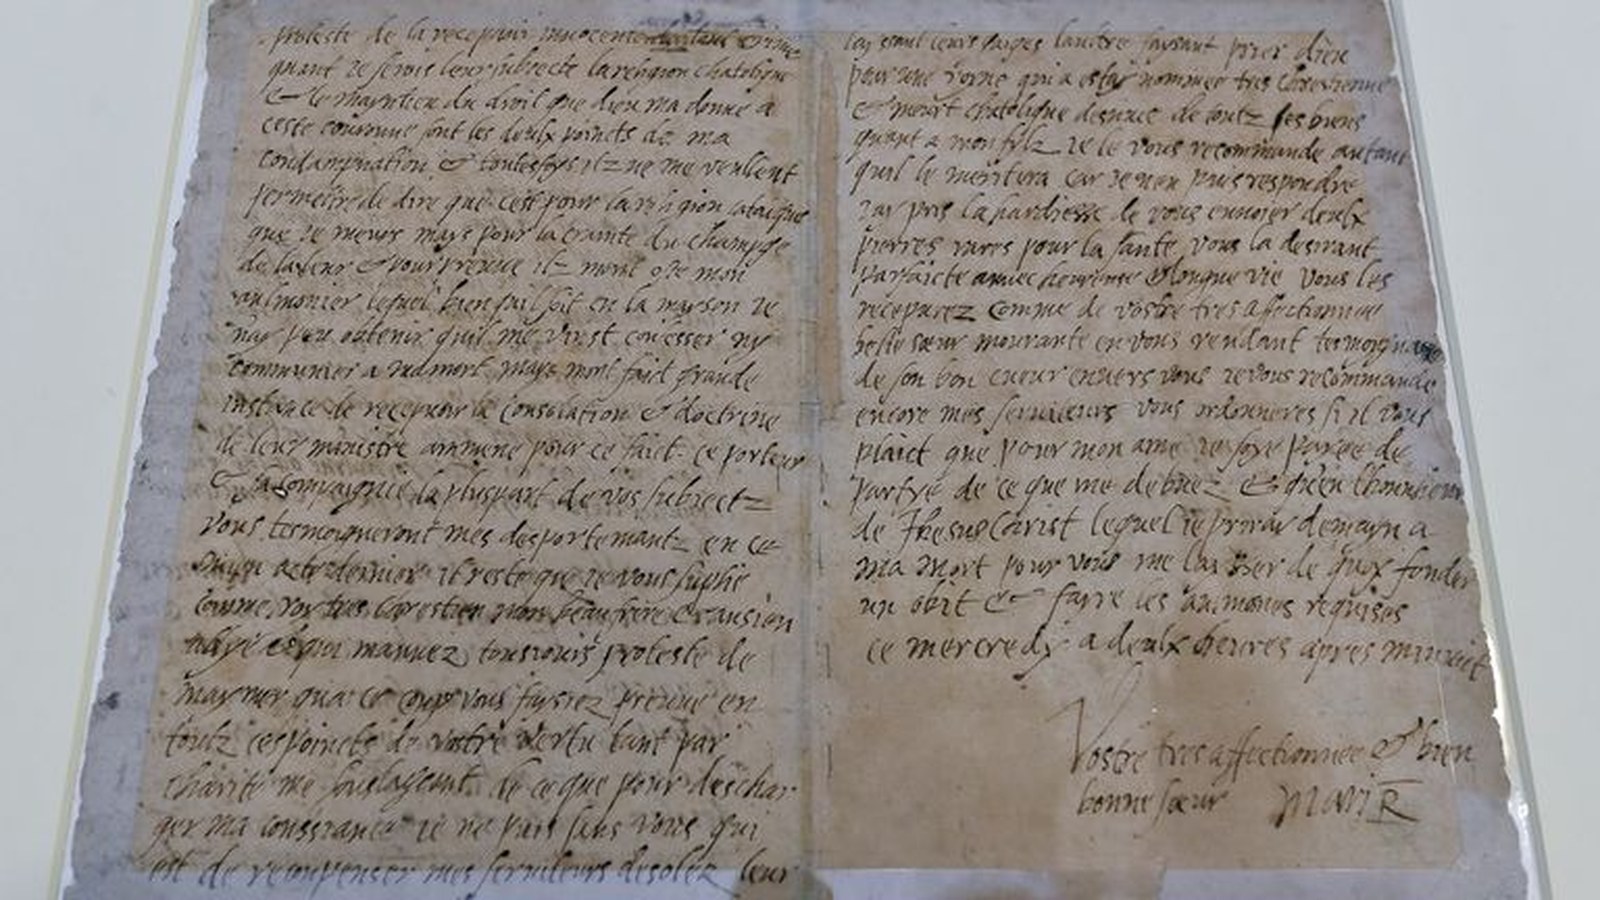 proteste de la recepvoir innocente de tout crime
quant je serois leur subjecte la religion chatolique
& le mayntien du droit que dieu ma donne a
ceste couronne sont les deulx poincts de ma
condampnation & toutesfoys ilz ne me veullent
permettre de dire que cest pour la religion catolique
que je meurs mays pour la crainte du champge
de la leur & pour preuve ilz mont oste mon
aulmonier lequel bien quil soit en la mayson je
nay peu obtenir quil me vinst confesser ny
communier a ma mort mays mont faict grande
instance de recepvoir la consolation & doctrine
de leur ministre ammene pour ce faict ce porteur
& sa compaignie la pluspart de vos subjectz
vous tesmoigneront mes desportemantz en ce
mien acte dernier il reste que je vous suplie
comme roy tres chrestien mon beau frere & ansien
allye & qui mavvez tousjours proteste de
maymer qua ce coup vous faysiez preuve en
toutz ces poincts de vostre vertu tant par
charite me soulageant de ce que pour deschar
ger ma conssiance je ne puis sans vous qui
est de recompenser mes serviteurs desolez leur
layssant leurs gaiges laultre faysant prier dieu
pour une royne qui a estay nommee tres chrestienne
& meurt chatolique desnuee de toutz ses biens
quant a mon fylz je le vous recommande autant
quil le meritera car je nen puis respondre
jay pris la hardiesse de vous envoier deulx
pierres rares pour la sante vous la desirant
parfaicte aveec heureuse & longue vie vous les
recepvrez comme de vostre tres affectionnee
belle sœur mourante en vous rendant tesmoygnage
de son bon cueur envers vous je vous recommande
encore mes serviteurs vous ordonneres si il vous
plaict que pour mon ame je soye payee de
partye de ce que me debvez & quen lhonneur
de Jhesus Christ lequel je priray demayn a
ma mort pour vous me laysser de quoy fonder
un obit & fayre les aumones requises
ce mercredy a deulx heures apres minuit
Vostre tres affectionnee & bien
bonne sœur Mari R